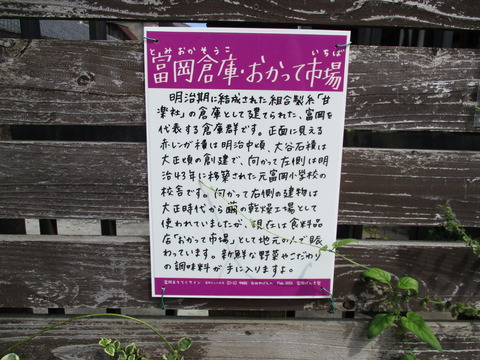 とみおかそうこ いちば
富岡倉庫・おかって市場
明治期に結成された組合製糸「甘
楽社」の倉庫として建てられた、富岡を
代表する倉庫群です。正面に見える
赤レンガ積は明治中頃、大谷石積は
大正頃の創建で、向かって左側は明
治43年に移築された元富岡小学校の
校舎です。向かって右側の建物は
大正時代から繭の乾燥工場として
使われていましたが、現在は食料品
店“おかって市場”として地元の人で賑
わっています。新鮮な野菜やこだわり
の調味料が手に入りますよ。
富岡まちてくサイン